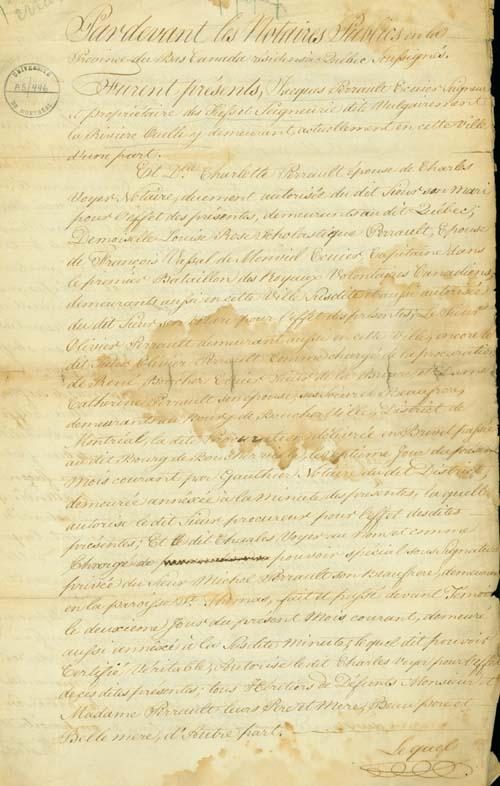 Pardevant les Notaires Publics en la
Province du Bas Canada résidens à Québec Soussignés.
UNIVERSITÉ
DE MONTRÉAL
Furent présents, Jacques Perrault Ecuier Seigneur
et propriétaire des Fief et Seigneurie dite Vulgairement
la Rivière Ouelle y demeurant, actuellement en cette Ville
d'une part.
Et Charlotte Perrault épouse de Charles
Voyer, Notaire, duement autorisée du dit Sieur son Mari
pour l'effet des présentes, demeurants au dit Québec;
Demoiselle Louise Rose Scholastique Perrault, Epouse
de François Vassal de Monviel Ecuier, Capitaine dans
le premier Bataillon des Royaux Volontaires Canadiens,
demeurants aussi en cette Ville Susdite et aussi autorisée
du dit Sieur son pour l'effet des présentes; Le Sieur
Olivier Perrault demeurant aussi en cette Ville, encore le
dit Sieur Olivier Perrault Comme chargé de la procuration
de René Boucher Ecuier Sieur de la Bruere et Dame
Catherine Perrault son épouse, ses soeur et Beaufrere,
demeurants au Bourg de Boucherville, District de
Montréal, la dite Procuration délivrée en Brevet passée
au dit Bourg de Boucherville le septième Jour du présent
Mois courant par Gauthier Notaire du dit District
demeurée annéxée à la Minute des présentes, laquelle
autorise le dit Sieur procureur pour l'effet des dites
présentes; Et le dit Charles Voyer au nom et comme
Chargé de pouvoir spécial sous Signature
privée du Sieur Michel Perrault son Beaufrere, demeurant
en la paroisse St. Thomas, fait et passé devant Temoins
le deuxieme Jour du présent Mois courant, demeuré
aussi annéxé à la Susdite Minute; lequel dit pouvoir
Certifié Véritable, Autorise le dit Charles Voyer pour l'effet
de ces dites présentes; tous Héritiers de Défunts Monsieur et
Madame Perrault leurs Pere et Mere, Beau pere et
Belle mere, d'Autre part.
Lequel